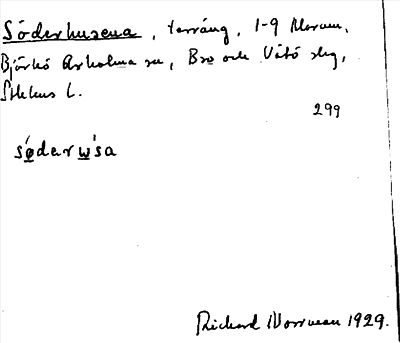 Söderhusena, terräng, 1-9 Marum,
Björkö Arholma sn, Bro och Vätö skg,
Sthlms l.
299
sǿderẃsa
Richard Norrman 1929.